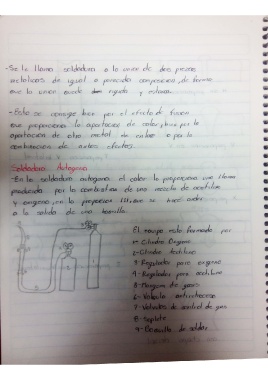 -Se le llama soldadura a la union de dos piezas
metalicas de igual o parecida composicion, de forma
que la union quede rigida y estanca.
-Esto se consigue bien por el efecto de fusion
que proporciona la aportacion de calor, bien por la
aportacion de otro metal de enlace o por la
combinacion de ambos efectos.
Soldadura Autogena
-En la soldadura autogena el calor lo proporciona una llama
producida por la combustion de una mezcla de acetileno
y oxigeno, en la proporcion 1:1, que se hace arder
a la salida de una boquilla.
El equipo esta formado por
1- Cilindro Oxigeno
2- Cilindro Acetileno
3- Regulador para oxigeno
4- Regulador para acetileno
5- Mangueras de gases
6- Valvula antirretroceso
7- Valvulas de control de gas
8- Soplete
9- Boquilla de soldar